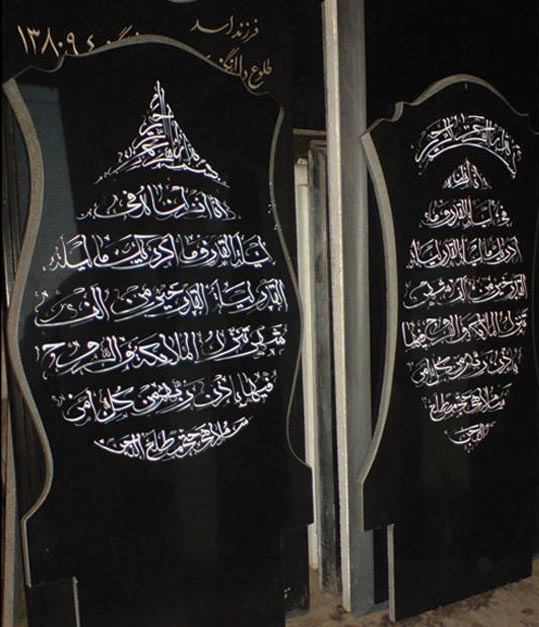 فرزند اسد
طلوع
۱۳۸۰۹
بسم الله الرحمن الرحیم
انا انزلناه فی
لیلة القدر و ما ادریک ما لیلة
القدر لیلة القدر خیر من الف
شهر تنزل الملائکة و الروح
فیها باذن ربهم من کل امر
سلام هی حتی مطلع الفجر
بسم الله الرحمن الرحیم
انا انزلناه
فی لیلة القدر و ما
ادریک ما لیلة القدر لیلة
القدر خیر من الف شهر
تنزل الملائکة و الروح فیها
باذن ربهم من کل امر
سلام هی حتی مطلع
الفجر